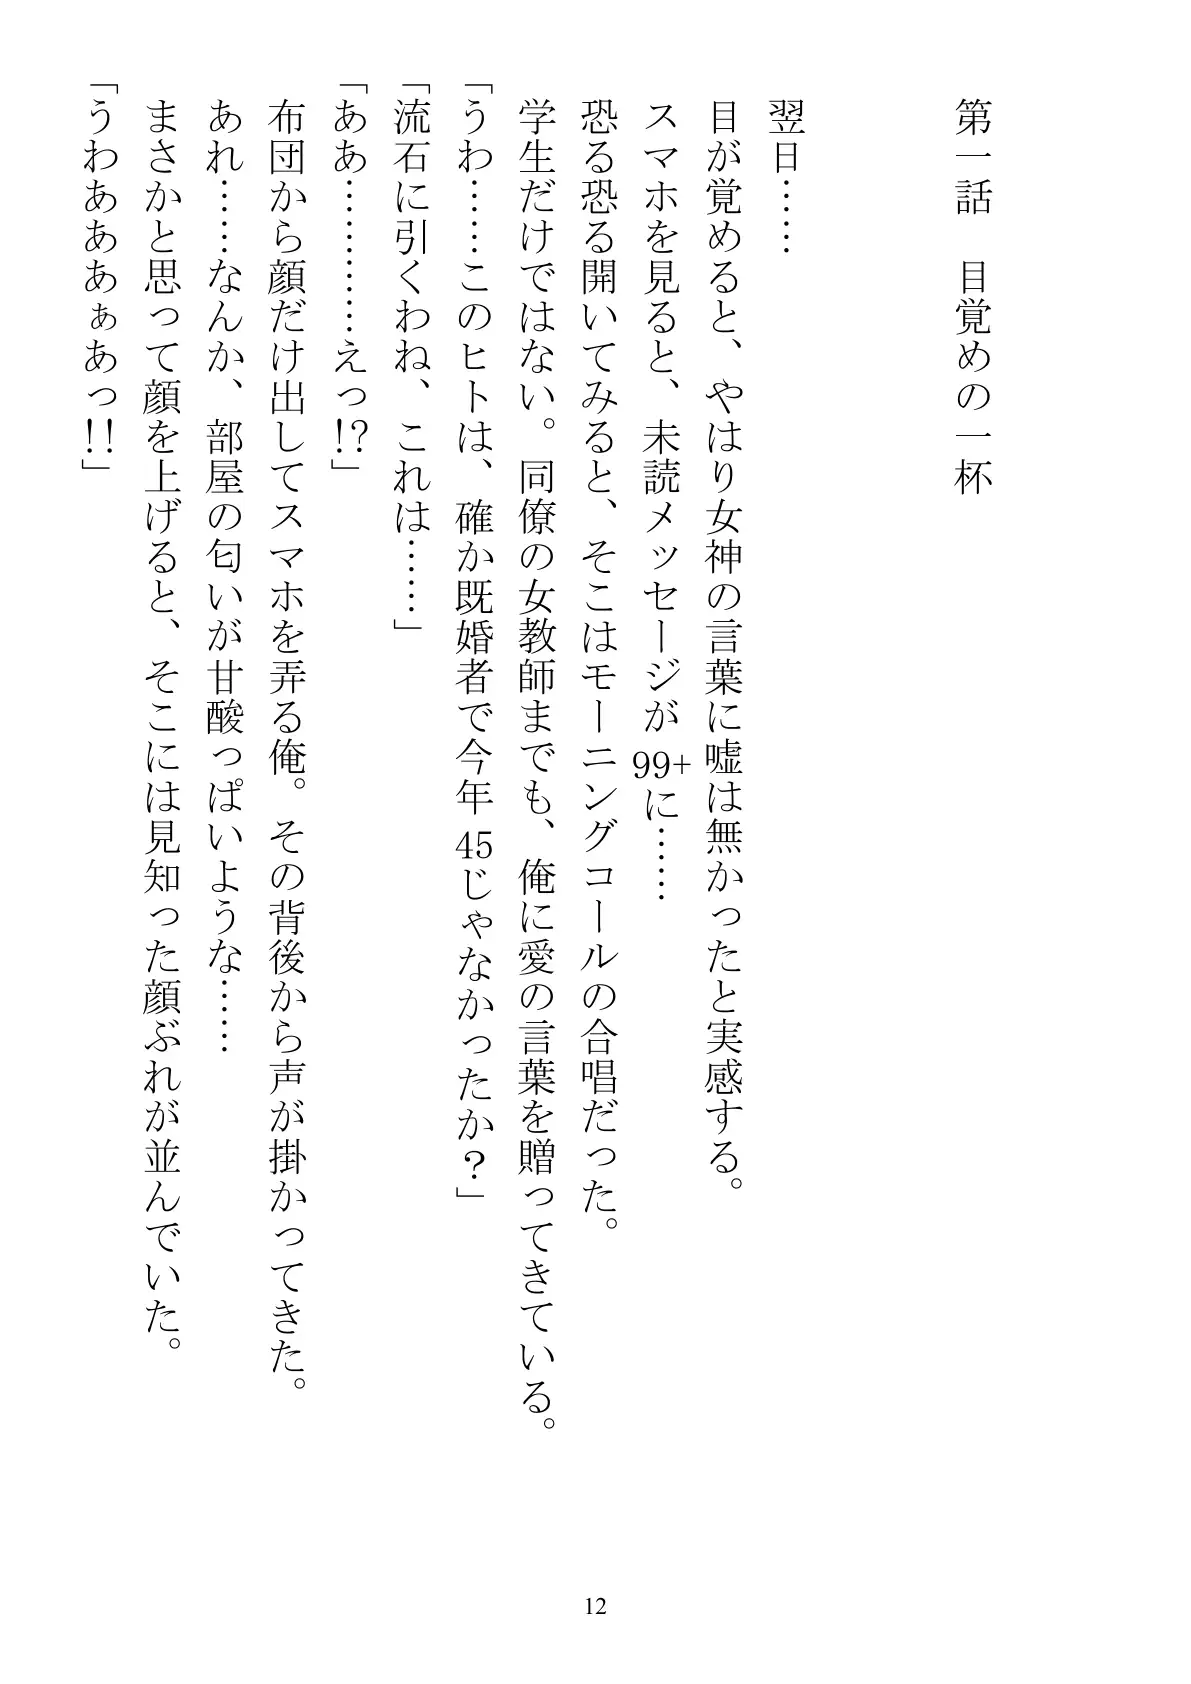 第一話　目覚めの一杯
翌日……
目が覚めると、やはり女神の言葉に嘘は無かったと実感する。
スマホを見ると、未読メッセージが99+に……
恐る恐る開いてみると、そこはモーニングコールの合唱だった。
学生だけではない。同僚の女教師までも、俺に愛の言葉を贈ってきている。
「うわ……このヒトは、確か既婚者で今年45じゃなかったか？」
「流石に引くわね、これは……」
「ああ…………えっ!?」
布団から顔だけ出してスマホを弄る俺。その背後から声が掛かってきた。
あれ……なんか、部屋の匂いが甘酸っぱいような……
まさかと思って顔を上げると、そこには見知った顔ぶれが並んでいた。
「うわあああぁあっ!!」
12